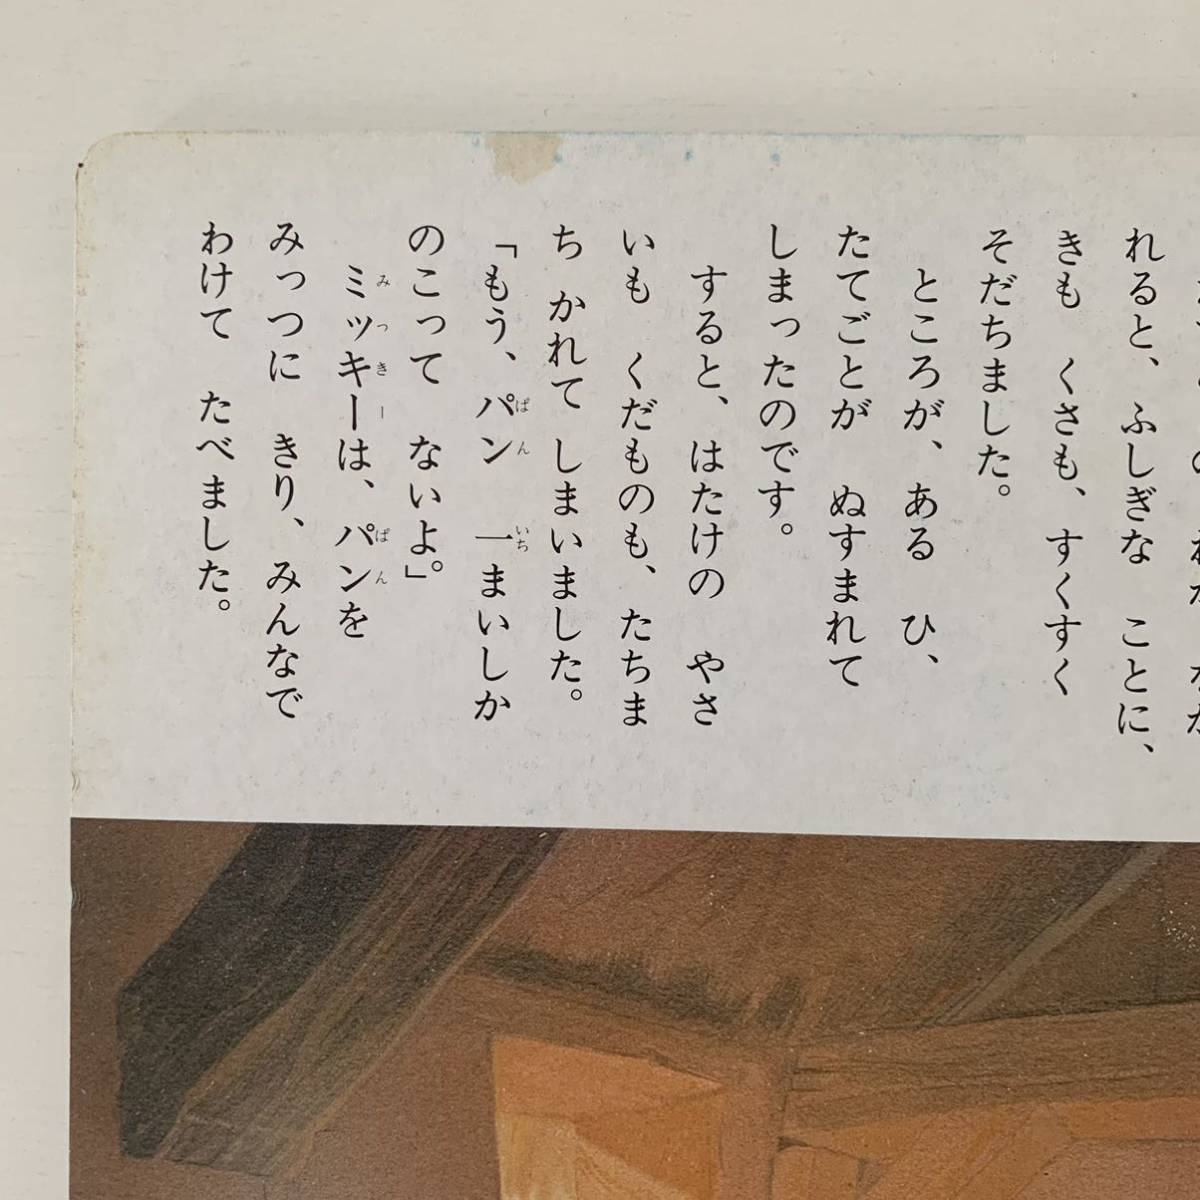 れると、ふしぎな ことに、
きも くさも、すくすく
そだちました。
ところが、ある ひ、
たてごとが ぬすまれて
しまったのです。
すると、はたけの やさ
いも くだものも、たちま
ち かれて しまいました。
「もう、パン 一まいしか
ぱん いち
のこって ないよ。」
ミッキーは、パンを
みっきー ぱん
みっつに きり、みんなで
わけて たべました。